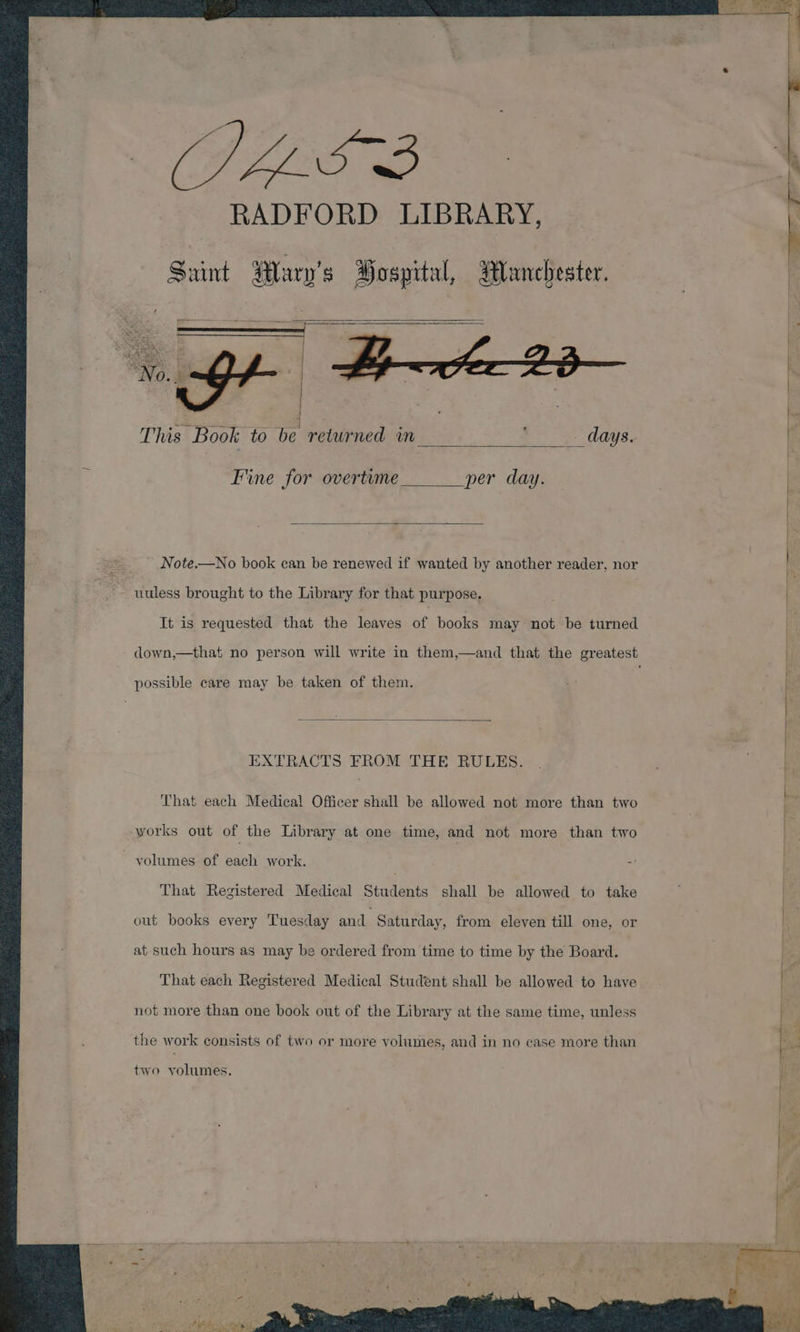 RADFORD LIBRARY,
Saint Mary's Hospital, Manchester.
No.
This Book to be returned in ______ days.
Fine for overtime ______ per day.
Note.—No book can be renewed if wanted by another reader, nor
uuless brought to the Library for that purpose.
It is requested that the leaves of books may not be turned
down,—that no person will write in them,—and that the greatest
possible care may be taken of them.
EXTRACTS FROM THE RULES.
That each Medical Officer shall be allowed not more than two
works out of the Library at one time, and not more than two
volumes of each work.
That Registered Medical Students shall be allowed to take
out books every Tuesday and Saturday, from eleven till one, or
at such hours as may be ordered from time to time by the Board.
That each Registered Medical Student shall be allowed to have
not more than one book out of the Library at the same time, unless
the work consists of two or more volumes, and in no case more than
two volumes.